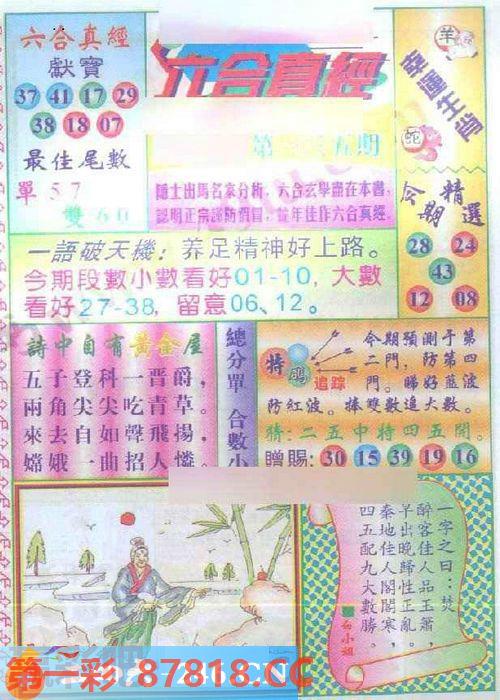 六合真經
獻寶
37 41 17 29
38 18 07
最佳尾數
單57
雙60
六合真經
五期
隱士出馬名家分析，六合玄學盡在本書，
認明正宗謹防假冒，常年佳作六合真經。
羊
幸運生肖
蛇
今期精選
28 24
43
12 08
一語破天機：养足精神好上路。
今期段數小數看好01-10，大數
看好27-38，留意06、12。
詩中自有黃金屋
五子登科一晋爵，
兩角尖尖吃青草。
來去自如聲飛揚，
嫦娥一曲招人憐。
總分單
合數小
特碼
追踪
今期預測于第
二門，防第四
門。睇好藍波
防紅波。捧雙數追大數。
猜:二五中特四五開。
贈賜:30 15 39 19 16
一字之曰：焚
醉客佳人品玉蕭，
早出晚歸性正亂。
泰地佳人閣閣寒，
四五配九大數勝。
白小姐
第一彩 87818.CC
246.CN